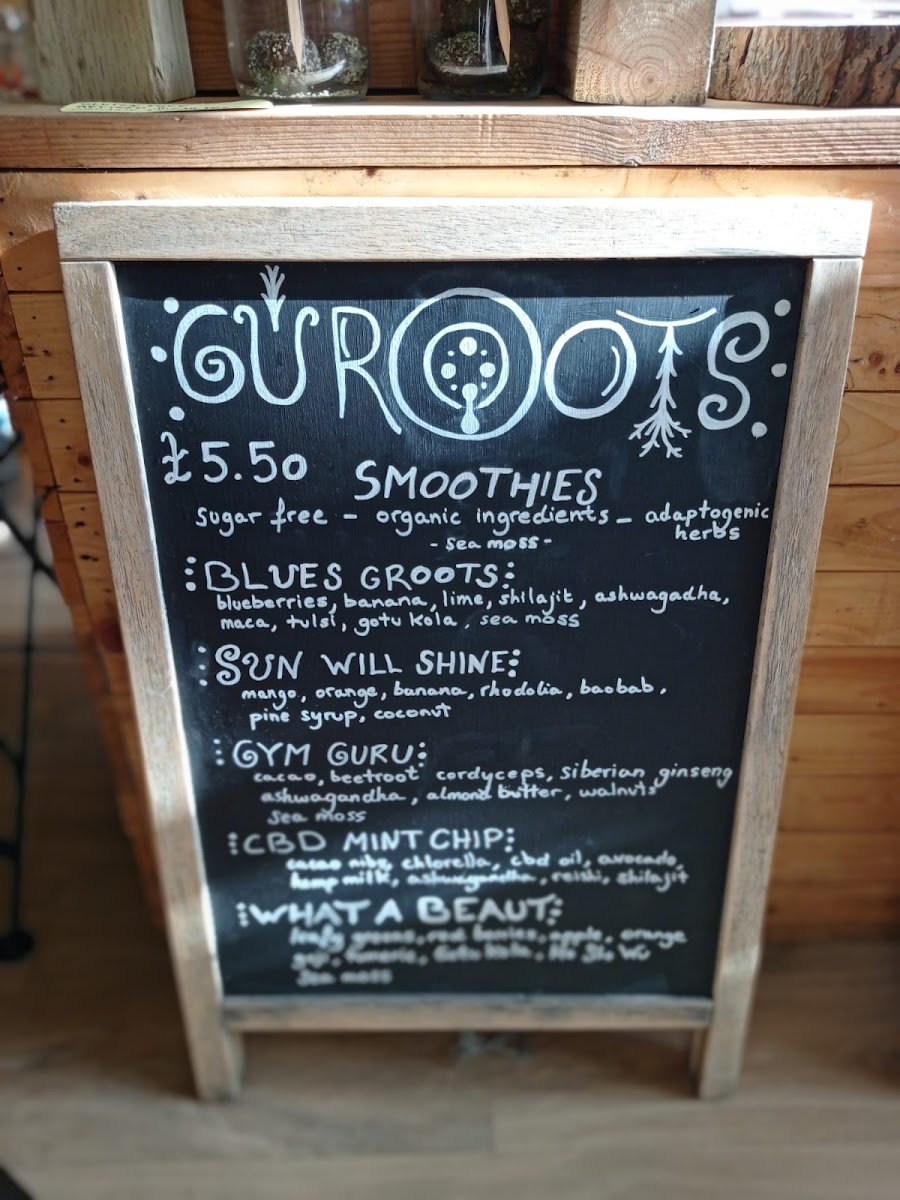 GUROOTS
£5.50
SMOOTHIES
sugar free - organic ingredients - adaptogenic
herbs
- sea moss -
BLUES GROOTS:
blueberries, banana, lime, shilajit, ashwagadha,
maca, tulsi, gotu kola, sea moss
SUN WILL SHINE:
mango, orange, banana, rhodolia, baobab,
pine syrup, coconut
GYM GURU:
cacao, beetroot cordyceps, siberian ginseng
ashwagandha, almond butter, walnuts
sea moss
CBD MINT CHIP:
cacao nibs, chlorella, cbd oil, avocado,
hemp milk, ashwagandha, reishi, shilajit
WHAT A BEAUT:
leafy greens, red berries, apple, orange
goji, turmeric, Gotu Kola, Ho Sho Wu
sea moss